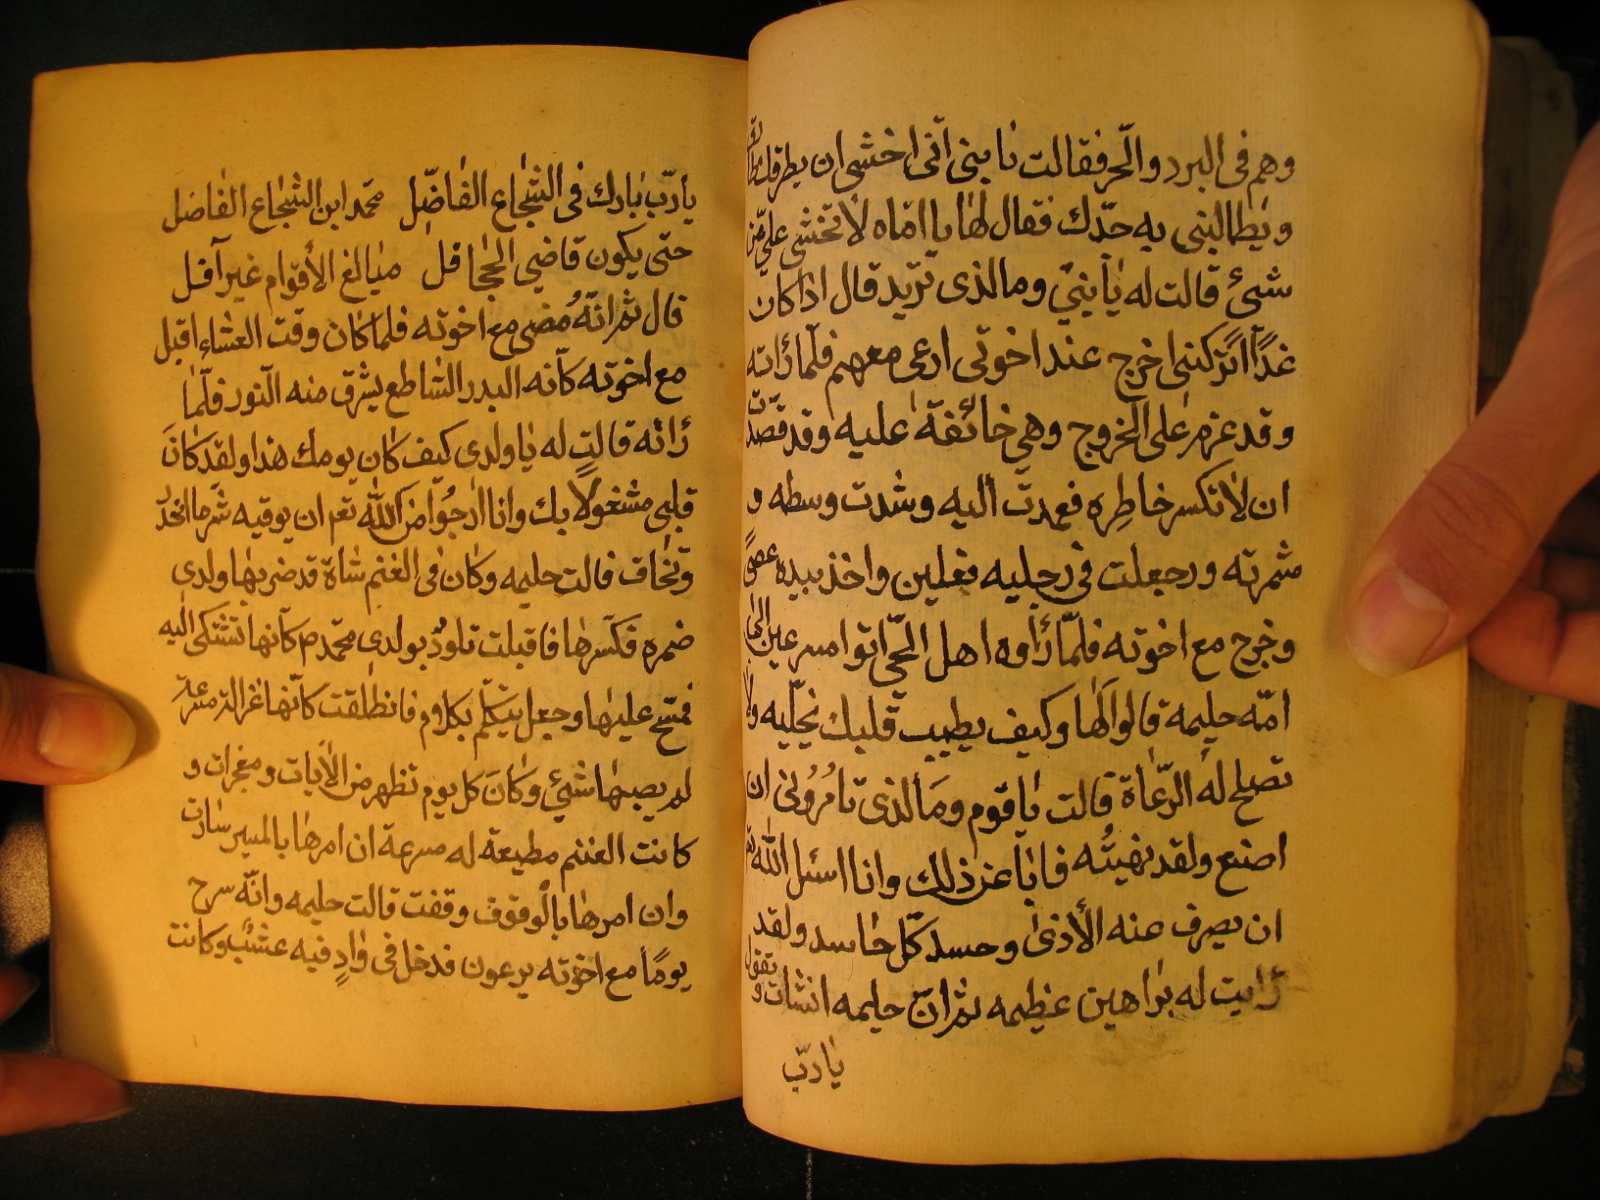 وهم فى البرد والحر فقالت يا بنى انى اخشى ان يطرقك
ويطالبنى به جدك فقال لها يا اماه لا تخشى على من
شئ قالت له يا بنى وما الذى تريد قال اذا كان
غداً اتركنى اخرج عند اخوتى ارعى معهم فلما رأته
وقد عزم على الخروج وهى خائفة عليه وقد قصدت
ان لا تكسر خاطره فعمدت اليه وشدت وسطه و
شمرته وجعلت فى رجليه نعلين واخذ بيده عصى
وخرج مع اخوته فلما رأوه اهل الحى اتوا مسرعين الى
امه حليمه قالوا لها وكيف يطيب قلبك نخليه ولا
تصلح له الرعاة قالت يا قوم وما الذى تامرونى ان
اصنع ولقد نهيته فابا عن ذلك وانا اسئل الله تع
ان يصرف عنه الأذى وحسد كل حاسد ولقد
رأيت له براهين عظيمه ثم ان حليمه انشات وتقول
يا رب
يا رب بارك فى الشجاع الفاضل محمد ابن الشجاع الفاضل
حتى يكون قاضى الحجافل مبالغ الأقوام غير آفل
قال ثم انه مضى مع اخوته فلما كان وقت العشاء اقبل
مع اخوته كأنه البدر الساطع يشرق منه النور فلما
رأته قالت له يا ولدى كيف كان يومك هذا ولقد كان
قلبى مشغولا بك وانا ارجوا من الله تع ان يوقيه شر ما
وتخاف قالت حليمه وكان فى الغنم شاة قد ضربها ولدى
ضمره فكسرها فاقبلت تلوذ بولدى محمد م كأنها تشتكى اليه
فمسح عليها وجعل يتكلم بكلام فانطلقت كأنها
لم يصبها شئ وكان كل يوم تظهر من الأيات ومعجزات و
كانت الغنم مطيعة له مسرعة ان امرها بالمسير سارت
وان امرها بالوقوف وقفت قالت حليمه وانه سرح
يوماً مع اخوته يرعون فدخل فى وادٍ فيه عشب وكانت